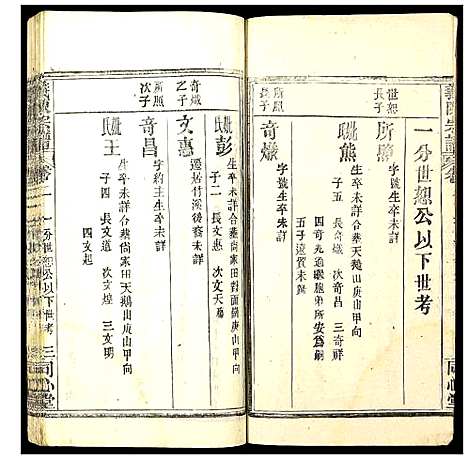 一分世恕公以下世考
世恕
長子
所照
字號生卒未詳
姚熊
生卒未詳合葬天鵝山庚山甲向
子五 長奇熾 次奇昌 三奇祥
四奇 五
所照
長子
奇熾
字號生卒未詳
姚彭
生卒未詳合葬尚家田對面 庚山甲向
子二 長文惠 次文天
奇熾
之子
文惠
遷居竹溪後裔未詳
所照
次子
奇昌
字 生卒未詳
姚王
生卒未詳合葬尚家田天鵝山庚山甲向
子四 長文道 次文煌 三文明
四文起
義陳宗譜 卷二
一分世恕公以下世考
三 同心堂